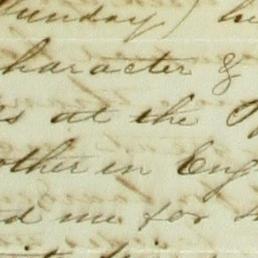 Sunday) he
character &
s at the
other in Eng
d me for